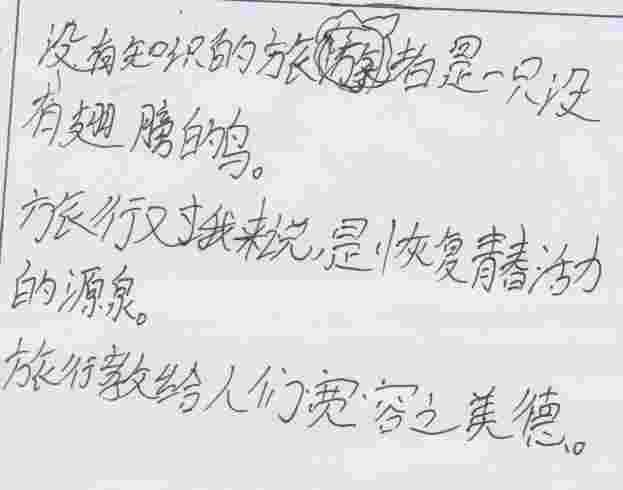 没有知识的旅者是一只没
有翅膀的鸟。
旅行对我来说,是恢复青春活力
的源泉。
旅行教给人们宽容之美德。